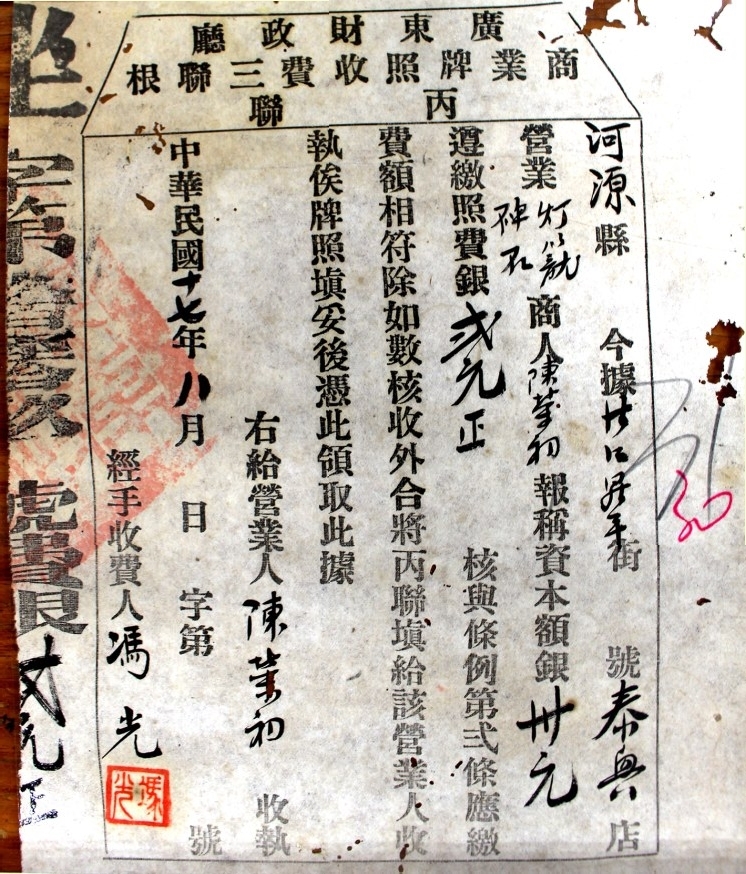 廣東財政廳
商業牌照收費三聯根
丙聯
河源縣 今據 街 號泰興店
營業灯籠 商人陳榮初報稱資本額銀卅元
遵繳照費銀弍元正 核與條例第弍條應繳
費額相符除如數核收外合將丙聯填給該營業人收
執俟牌照填妥後憑此領取此據
右給營業人陳榮初 收執
中華民國十七年八月 日 字第 號
經手收費人馮光
馮光
字第 號費銀弍元正
30